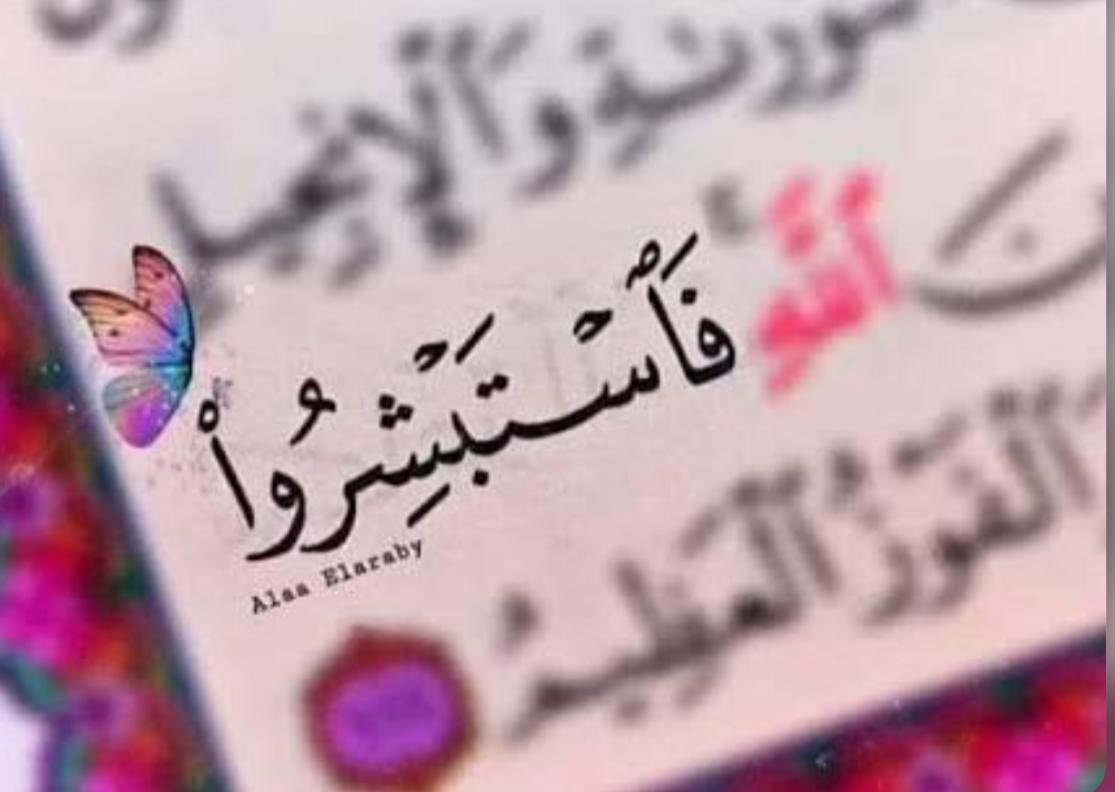 ـورىٰةِ وَٱلْإِنجِيلِ
ٱللَّهِ فَٱسْتَبْشِرُوا۟
Alaa Elaraby
ٱلْفَوْزُ ٱلْعَظِيمُ